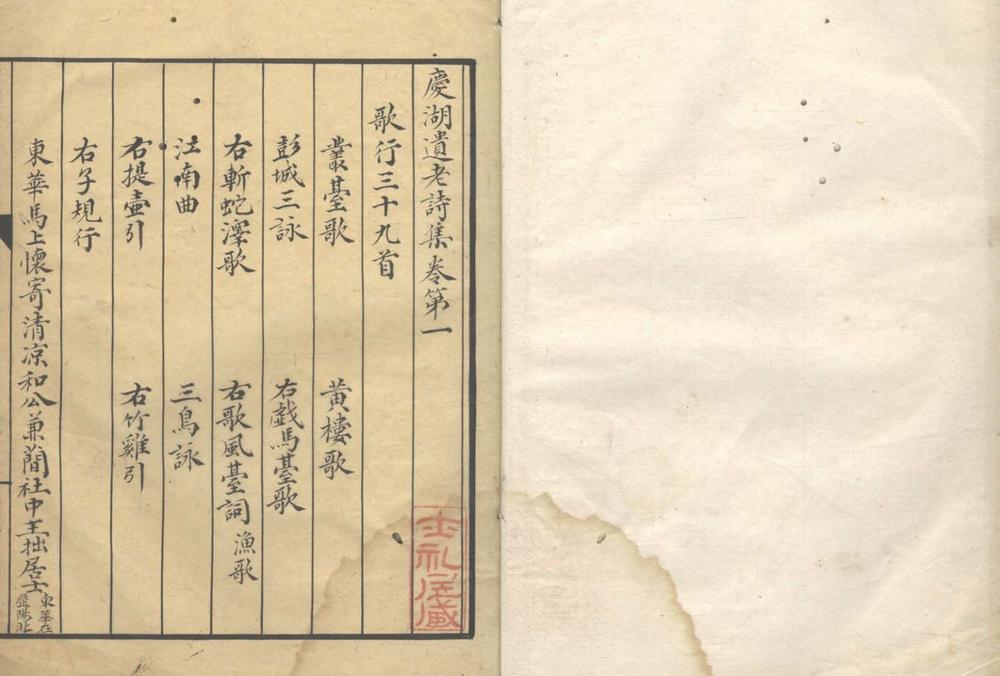 慶湖遺老詩集卷第一
歌行三十九首
叢臺歌 黄樓歌
彭城三詠 右戯馬臺歌
右斬蛇澤歌 右歌風臺詞 漁歌
江南曲 三鳥詠
右提壷引 右竹雞引
右子規行
東華馬上懷寄清凉和公兼蕳社中王拙居士 東華在歴陽北
士礼居藏